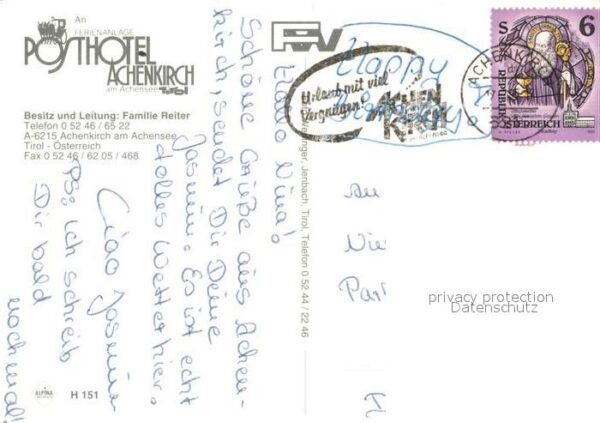 An
FERIENANLAGE
POSTHOTEL
ACHENKIRCH
am Achensee Tirol
Besitz und Leitung: Familie Reiter
Telefon 0 52 46 / 65 22
A-6215 Achenkirch am Achensee
Tirol - Österreich
Fax 0 52 46 / 62 05 / 468
Hallo Nina!
Schöne Grüße aus Achen-
kirch, sendet Dir Deine
Jasmin. Es ist echt
tolles Wetter hier.
Ciao Jasmin
PS: ich schreib
Dir bald
nochmal!
Happy
Urlaub mit viel
Vergnügen!
ACHEN
KIRCH
am Achensee
S 6
REPUBLIK
ÖSTERREICH
Jenbach, Tirol, Telefon 0 52 44 / 22 46
privacy protection
Datenschutz
ALPINA
H 151